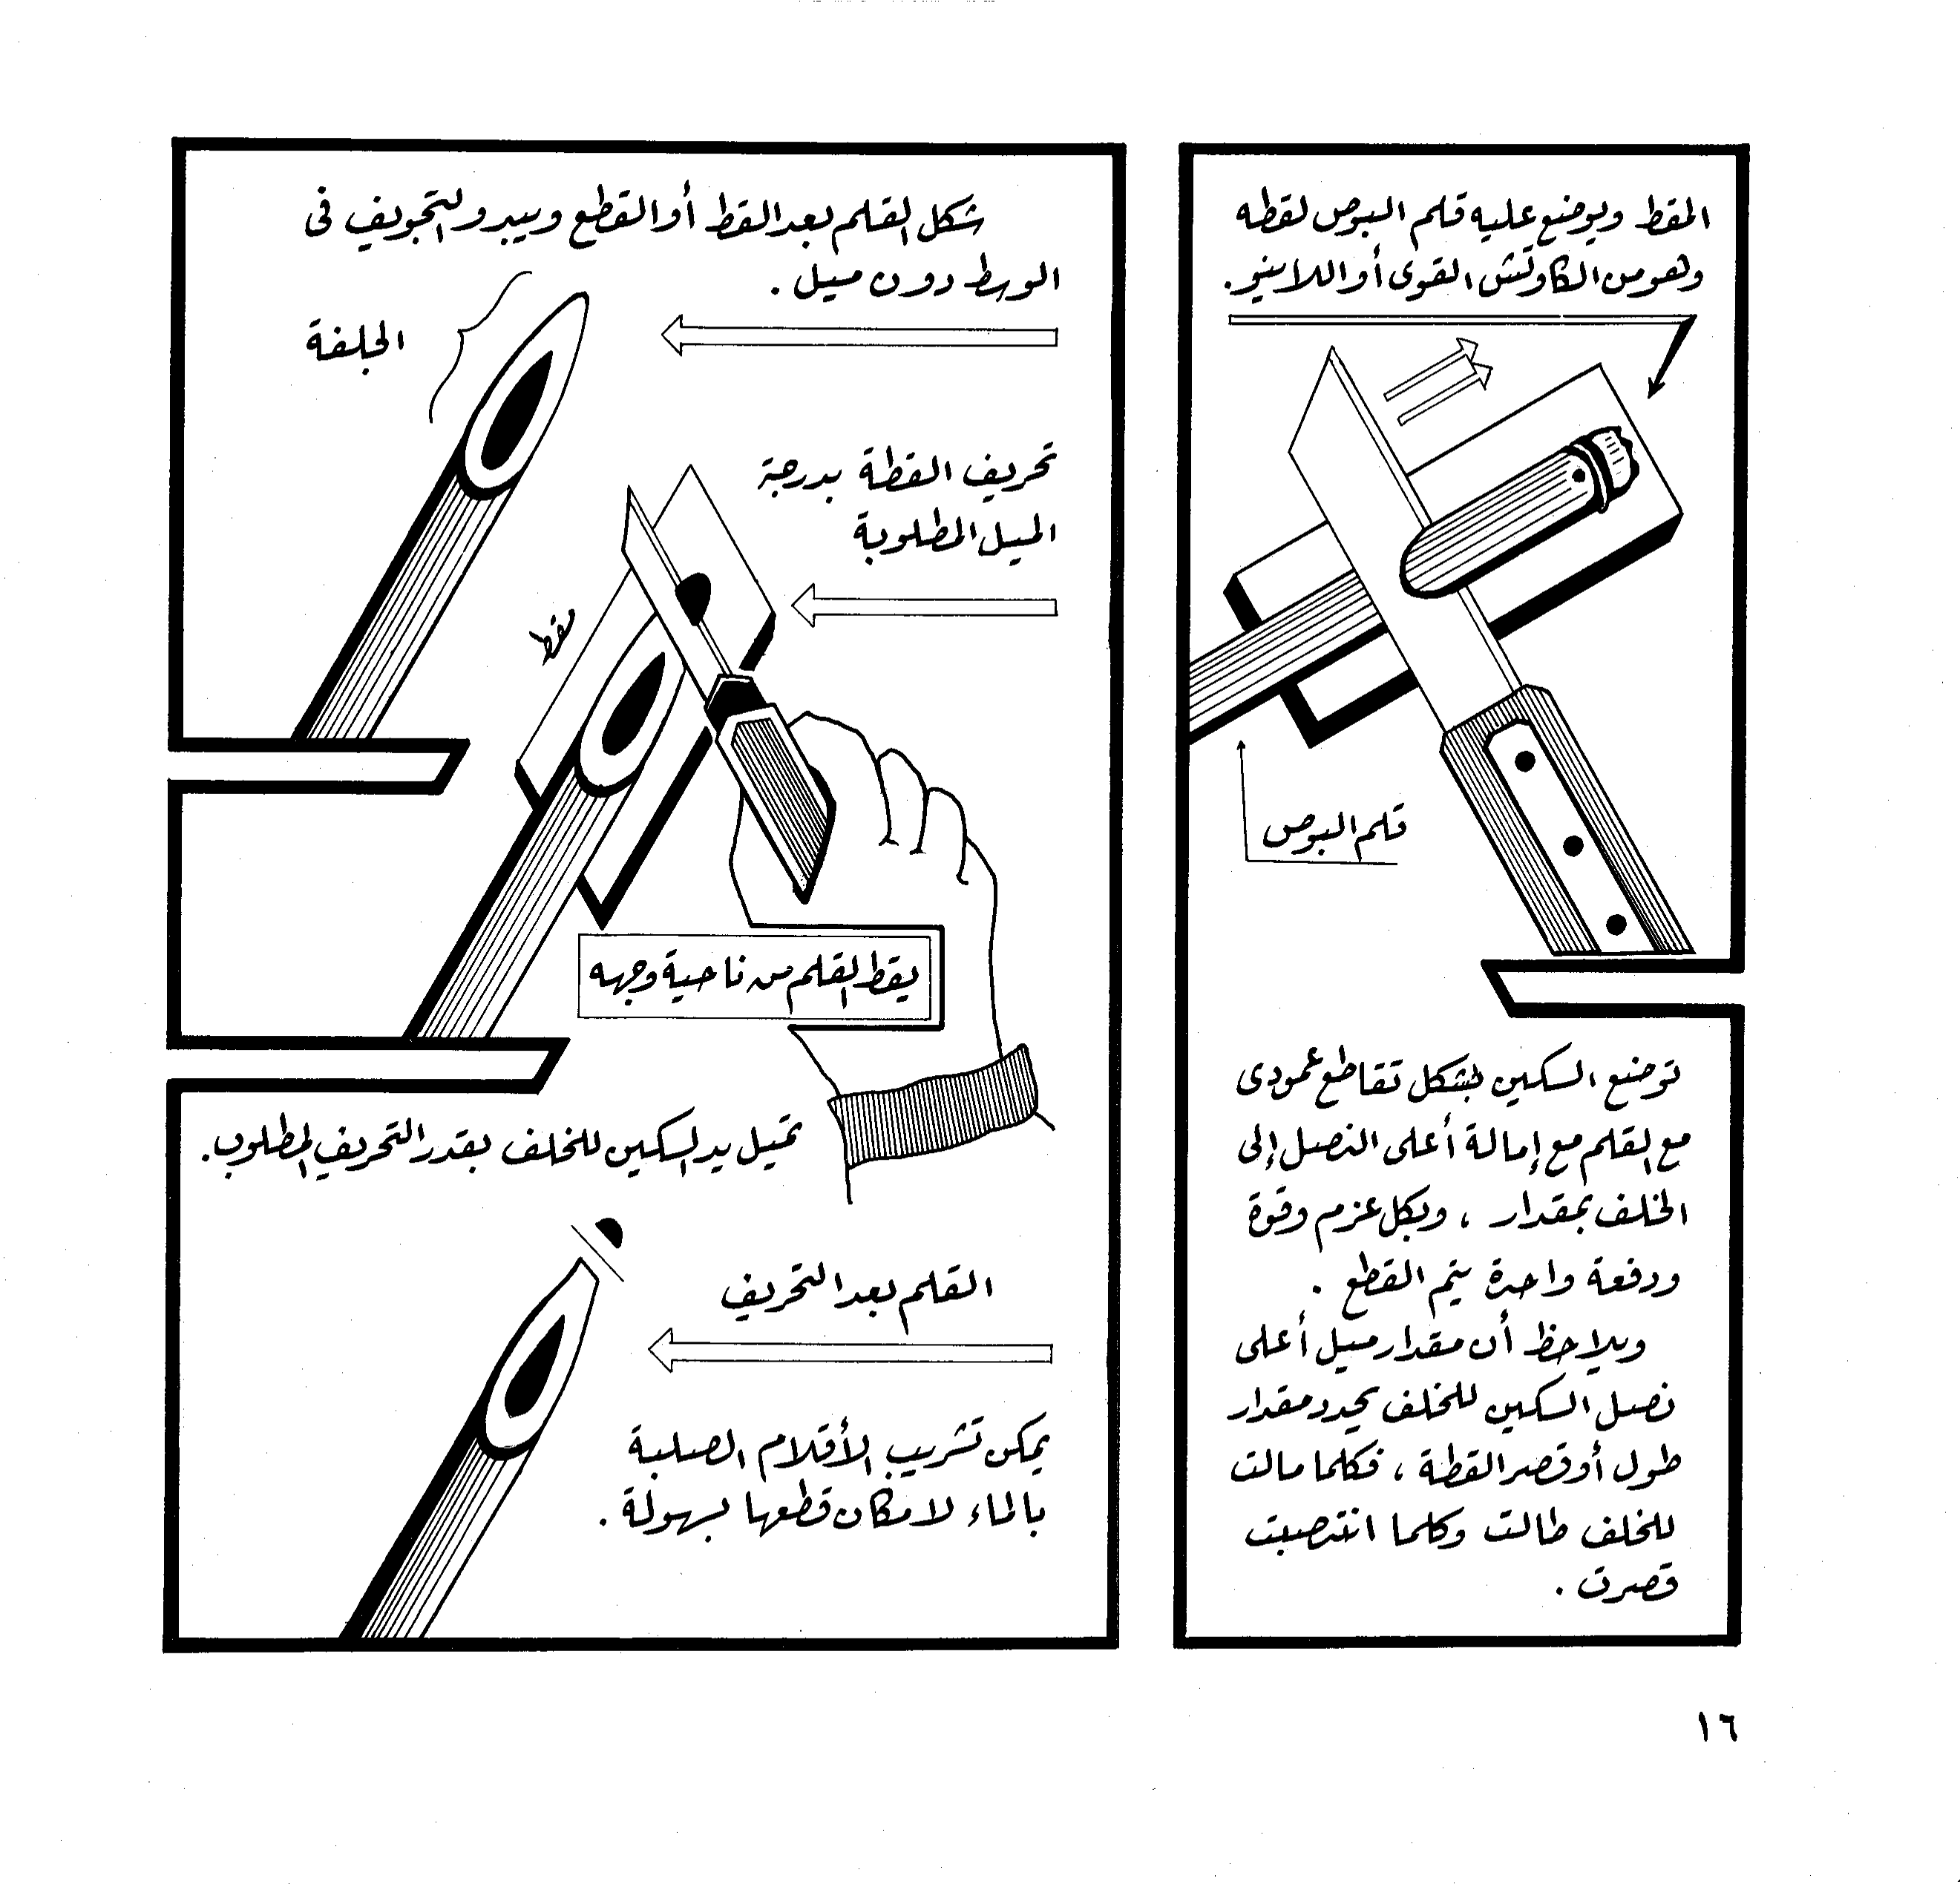 المقط ويوضع عليه قلم البوص لقطه
وهو من الكاوتش القوى أو اللاينو.
قلم البوص
توضع السكين بشكل تقاطع عمودى
مع القلم مع إمالة أعلى النصل إلى
الخلف بمقدار ، وبكل عزم وقوة
ودفعة واحدة يتم القطع .
ويلاحظ أن مقدار ميل أعلى
نصل السكين للخلف يحدد مقدار
طول أو قصر القطة ، فكلما مالت
للخلف طالت وكلما انتصبت
قصرت .
شكل القلم بعد القط أو القطع ويبدو التجويف فى
الوسط دون ميل .
الجلفة
تحريف القطة بدرجة
الميل المطلوبة
مقط
يقط القلم من ناحية وجهه
تميل يد السكين للخلف بقدر التحريف المطلوب.
القلم بعد التحريف
يمكن تشريب الأقلام الصلبة
بالماء لامكان قطعها بسهولة .
١٦